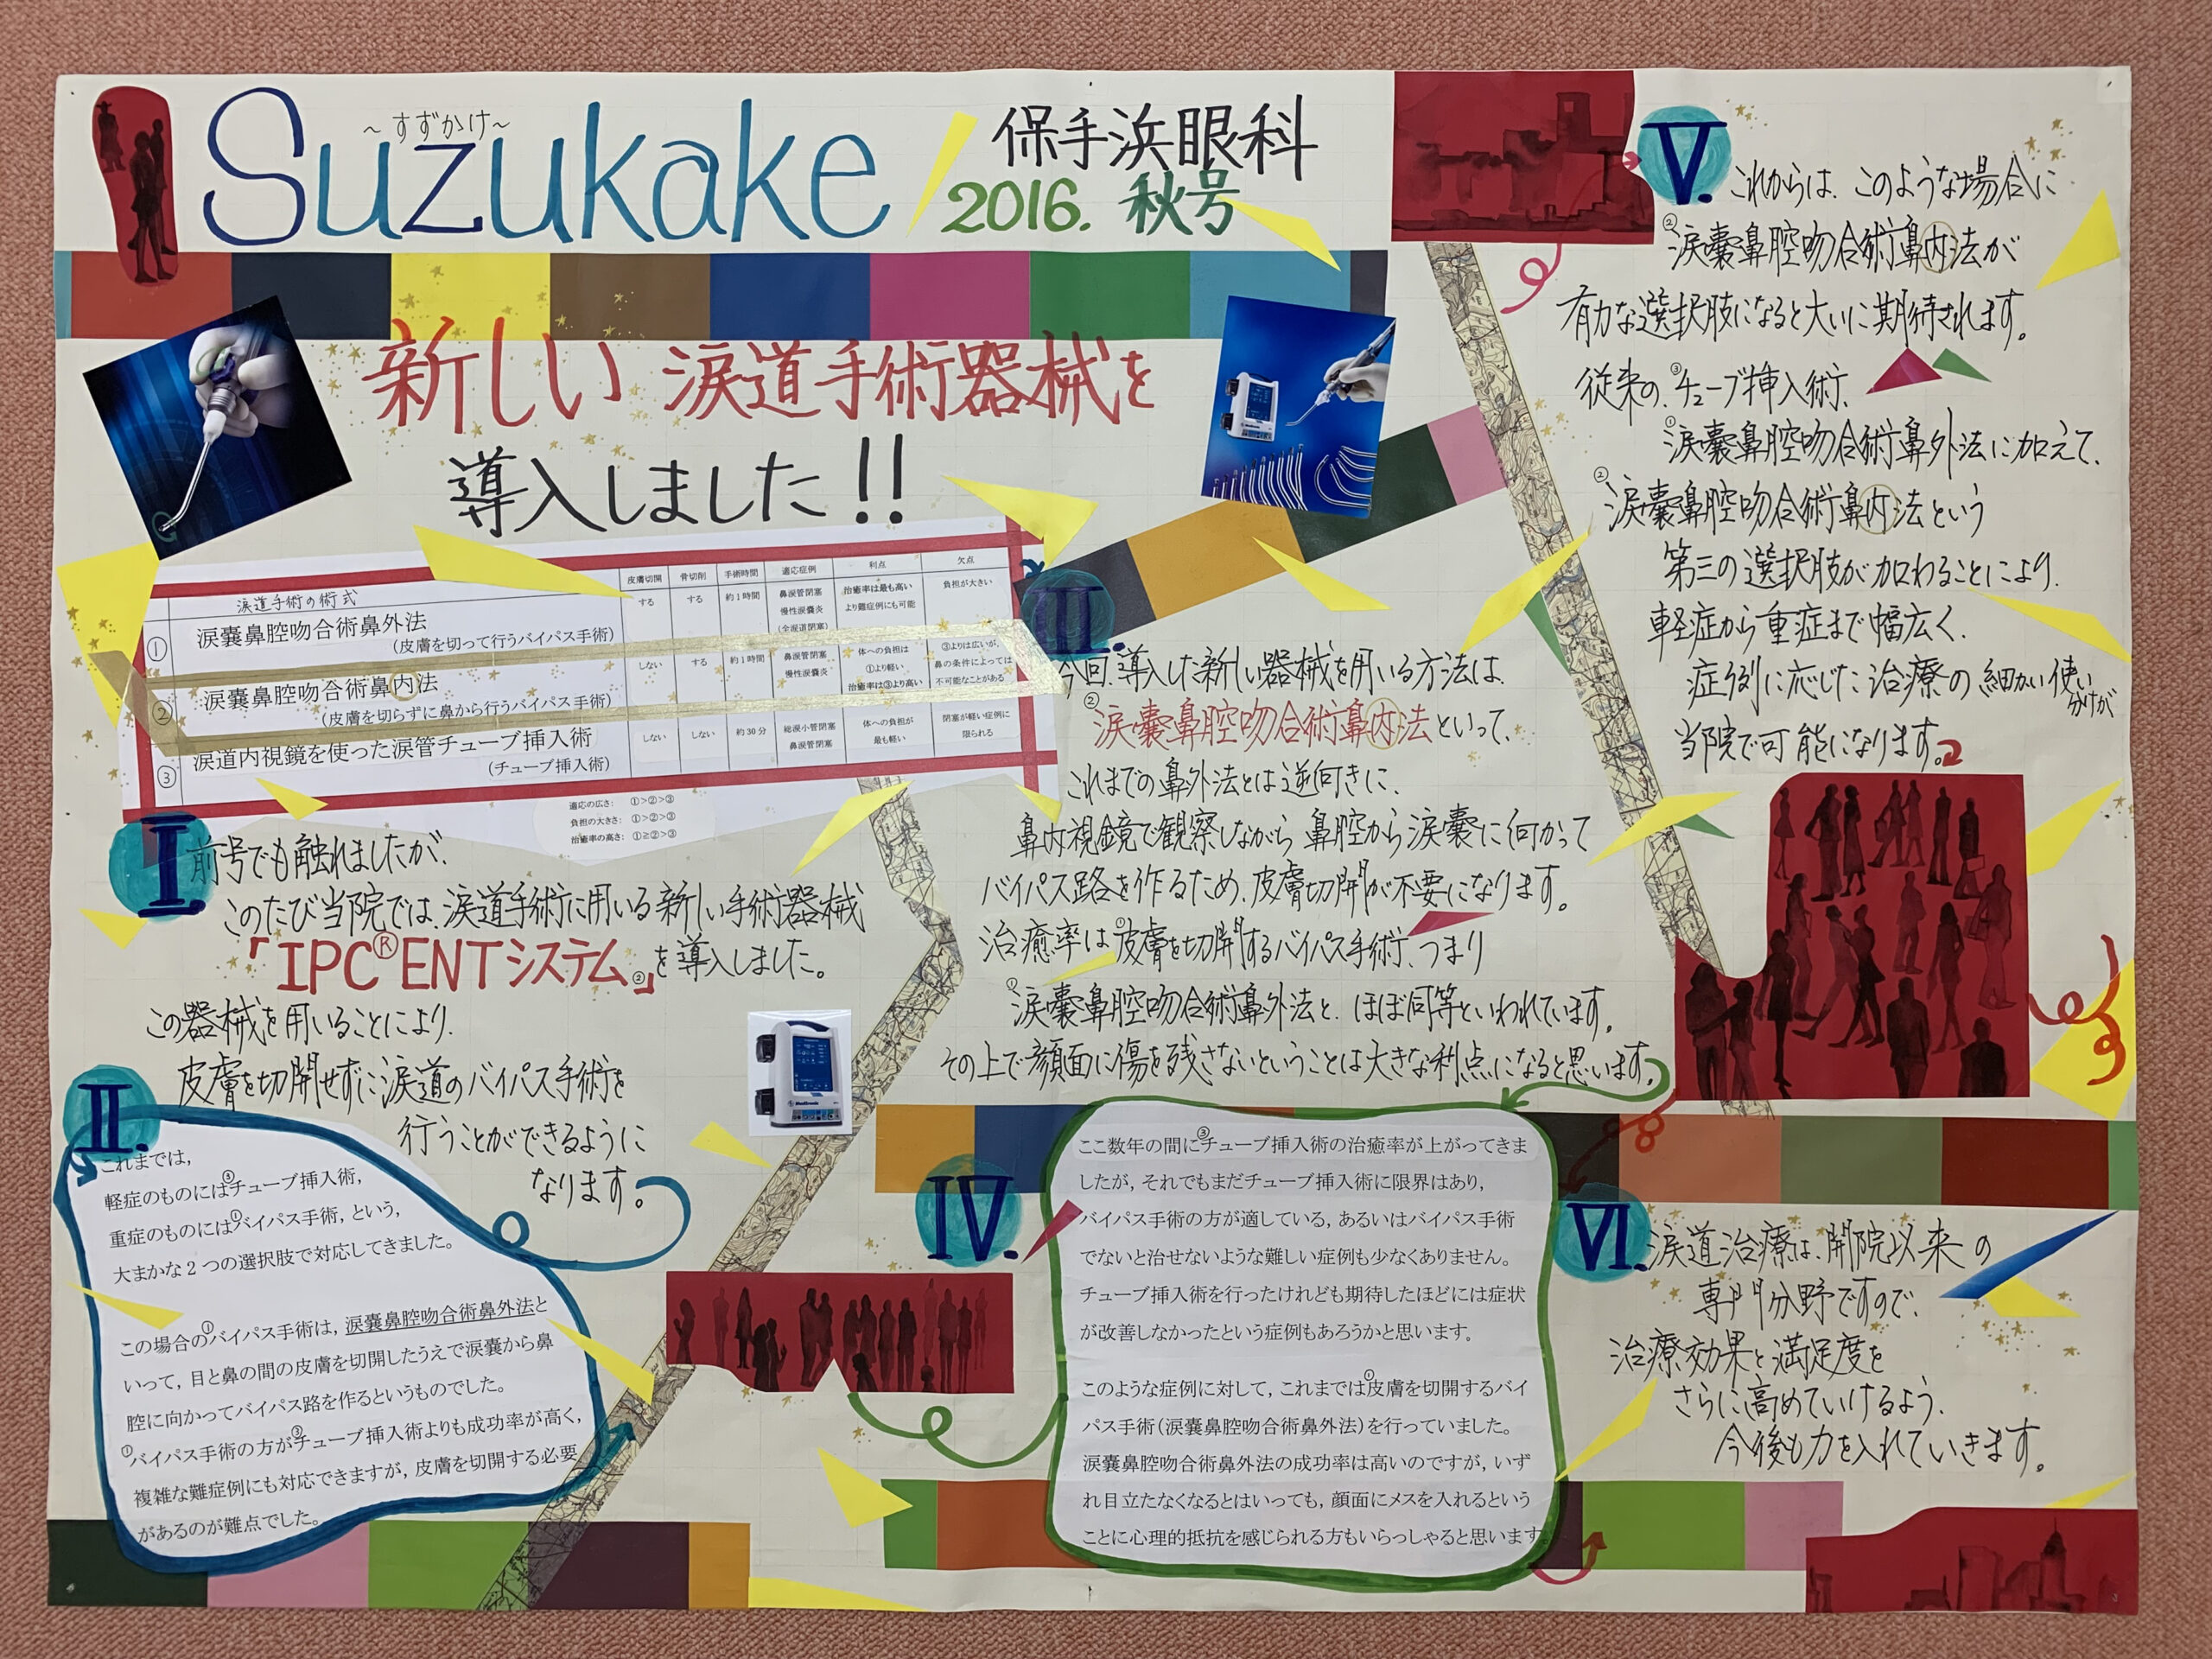 Suzukake
～すずかけ～
保手浜眼科
2016. 秋号
新しい 涙道手術器械を
導入しました!!
涙道手術の術式 皮膚切開 骨切削 手術時間 適応症例 利点 欠点
① 涙嚢鼻腔吻合術鼻外法 する する 約1時間 鼻涙管閉塞 治癒率は最も高い 負担が大きい
(皮膚を切って行うバイパス手術) 慢性涙嚢炎 より難症例にも可能
(全涙道閉塞)
② 涙嚢鼻腔吻合術鼻内法 しない する 約1時間 鼻涙管閉塞 体への負担は ③よりは広いが,
(皮膚を切らずに鼻から行うバイパス手術) 慢性涙嚢炎 ①より軽い 鼻の条件によっては
治癒率は③より高い 不可能なことがある
③ 涙道内視鏡を使った涙管チューブ挿入術 しない しない 約30分 総涙小管閉塞 体への負担が 閉塞が軽い症例に
(チューブ挿入術) 鼻涙管閉塞 最も軽い 限られる
適応の広さ: ①>②>③
負担の大きさ: ①>②>③
治癒率の高さ: ①≧②>③
I 前号でも触れましたが、
このたび当院では、涙道手術に用いる新しい手術器械
「IPC®ENTシステム②」を導入しました。
この器械を用いることにより、
皮膚を切開せずに涙道のバイパス手術を
行うことができるように
なります。
II.
これまでは,
軽症のものには③チューブ挿入術,
重症のものには①バイパス手術, という,
大まかな2つの選択肢で対応してきました。
この場合の①バイパス手術は, 涙嚢鼻腔吻合術鼻外法と
いって, 目と鼻の間の皮膚を切開したうえで涙嚢から鼻
腔に向かってバイパス路を作るというものでした。
①バイパス手術の方が③チューブ挿入術よりも成功率が高く,
複雑な難症例にも対応できますが, 皮膚を切開する必要
があるのが難点でした。
III.
今回、導入した新しい器械を用いる方法は、
②涙嚢鼻腔吻合術鼻内法といって、
これまでの鼻外法とは逆向きに、
鼻内視鏡で観察しながら 鼻腔から涙嚢に向かって
バイパス路を作るため、皮膚切開が不要になります。
治癒率は①皮膚を切開するバイパス手術、つまり
①涙嚢鼻腔吻合術鼻外法と、ほぼ同等といわれています。
その上で顔面に傷を残さないということは大きな利点になると思います。
IV.
ここ数年の間に③チューブ挿入術の治癒率が上がってきま
したが, それでもまだチューブ挿入術に限界はあり,
バイパス手術の方が適している, あるいはバイパス手術
でないと治せないような難しい症例も少なくありません。
チューブ挿入術を行ったけれども期待したほどには症状
が改善しなかったという症例もあろうかと思います。
このような症例に対して, これまでは①皮膚を切開するバイ
パス手術(涙嚢鼻腔吻合術鼻外法)を行っていました。
涙嚢鼻腔吻合術鼻外法の成功率は高いのですが, いず
れ目立たなくなるとはいっても, 顔面にメスを入れるという
ことに心理的抵抗を感じられる方もいらっしゃると思います。
V. これからは、このような場合に
②涙嚢鼻腔吻合術鼻内法が
有力な選択肢になると大いに期待されます。
従来の、③チューブ挿入術、
①涙嚢鼻腔吻合術鼻外法に加えて、
②涙嚢鼻腔吻合術鼻内法という
第三の選択肢が加わることにより、
軽症から重症まで幅広く、
症例に応じた治療の細かい使い分けが
当院で可能になります。
VI. 涙道治療は、開院以来の
専門分野ですので、
治療効果と満足度を
さらに高めていけるよう、
今後も力を入れていきます。